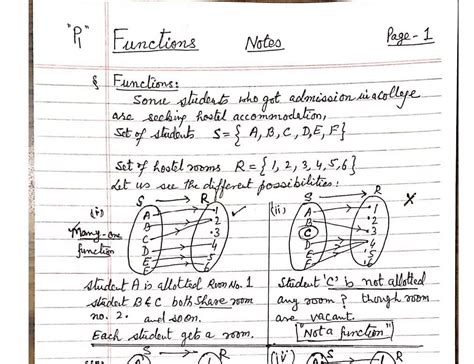 "P1" Functions Notes Page-1
§ Functions:
Some students who got admission in a college
are seeking hostel accommodation,
Set of students S = { A, B, C, D, E, F}
Set of hostel rooms R = { 1, 2, 3, 4, 5, 6}
Let us see the different possibilities:
S → R
(i)
Many-one
function
A
B
C
D
E
F
1
2
3
4
5
6
✓
student A is allotted Room No. 1
student B & C both share room
no. 2. and soon.
Each student gets a room.
S → R
(ii)
A
B
C
D
E
F
1
2
3
4
5
6
X
Student 'C' is not allotted
any room? though room
are vacant.
"Not a function"
S → R
A
1
(iv) S → R
A
1